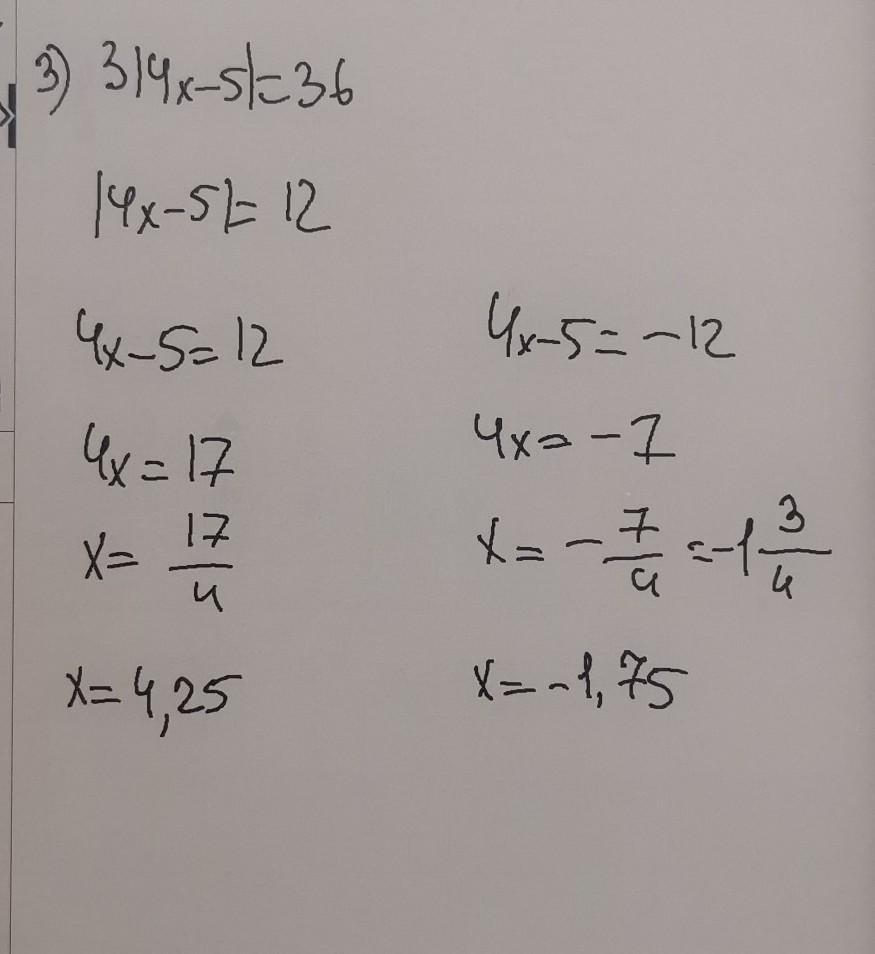 3) 3|4x-5|=36
|4x-5|= 12
4x-5= 12
4x= 17
x= 17/4
x= 4,25
4x-5= -12
4x= -7
x= -7/4 =-1 3/4
x= -1,75